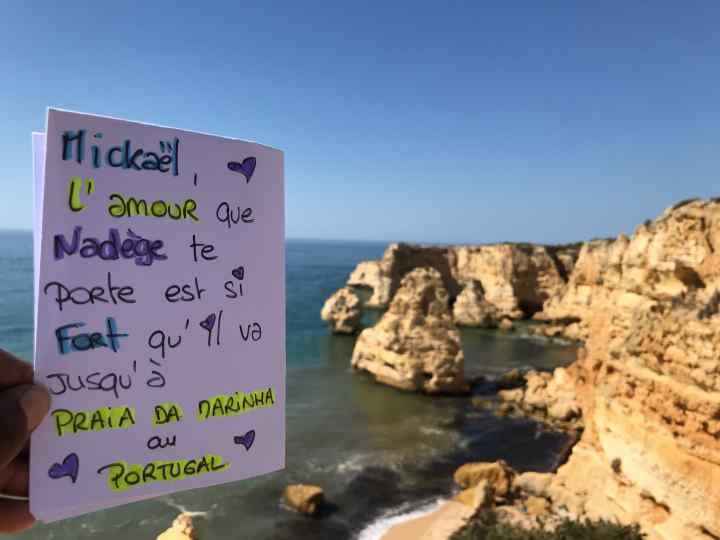 Mickaël,
L'amour que
Nadège te
porte est si
Fort qu'il va
jusqu'à
PRAIA DA MARINHA
au
PORTUGAL